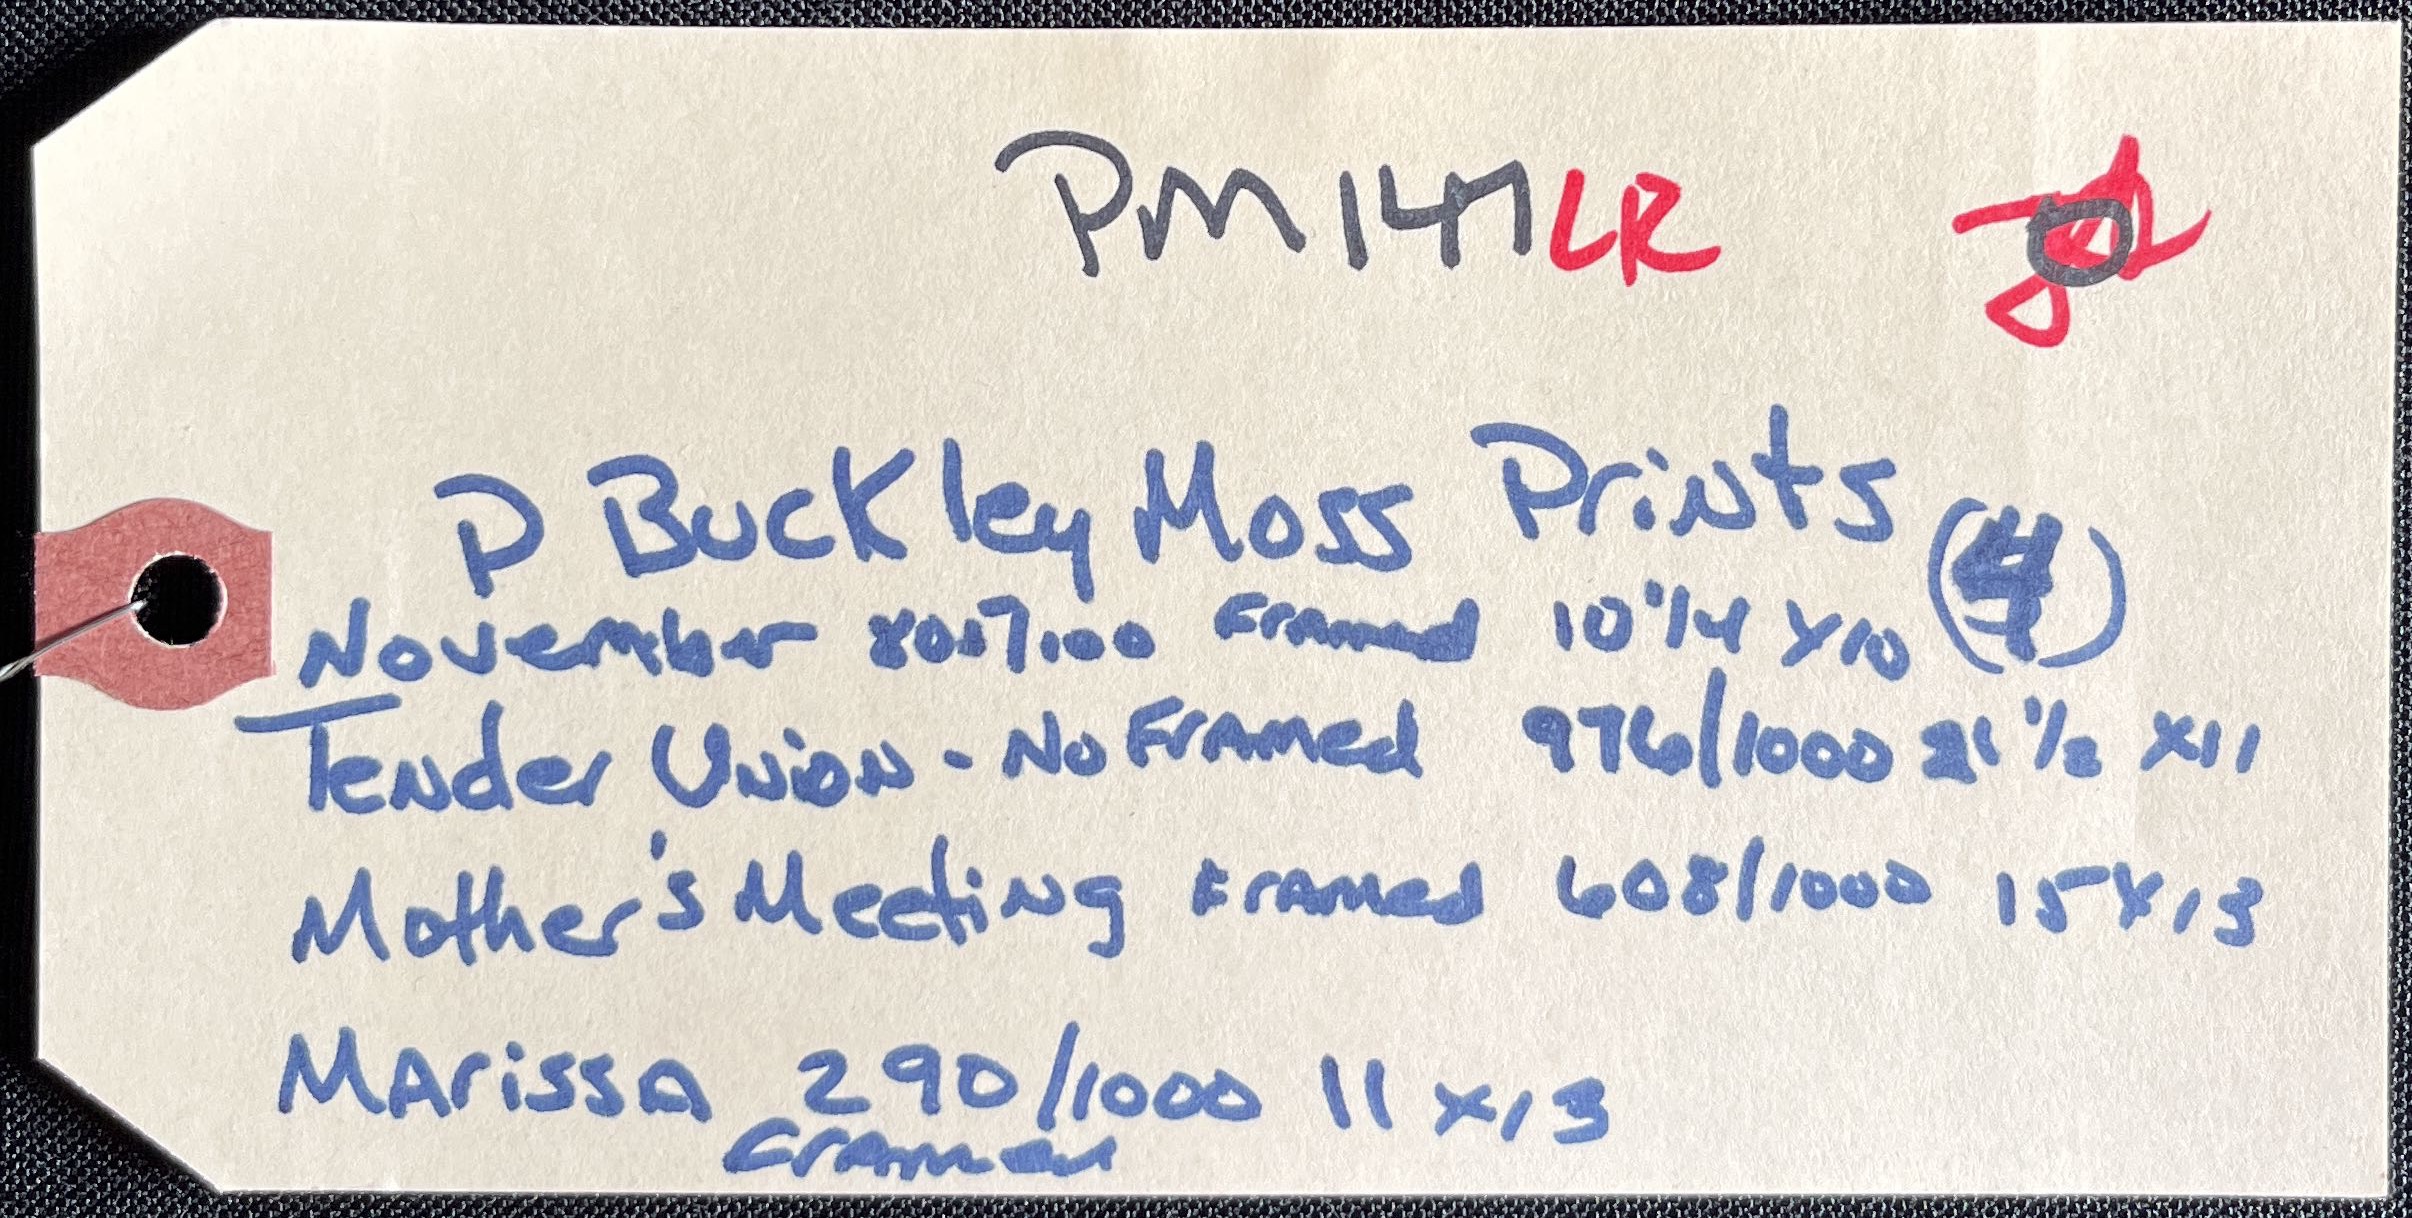 PM147LR
P Buckley Moss Prints (4)
November Framed 10 1/4 x10
Tender Union - No Framed 976/1000 21 1/2 x11
Mother's Meeting Framed 608/1000 15x13
MArissA 290/1000 11 x13
Framed